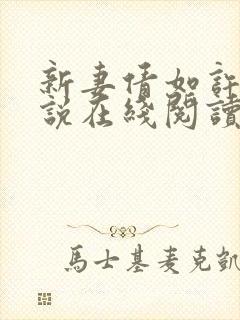 新妻情如許
說在綫閱讀
馬士基麦克凱